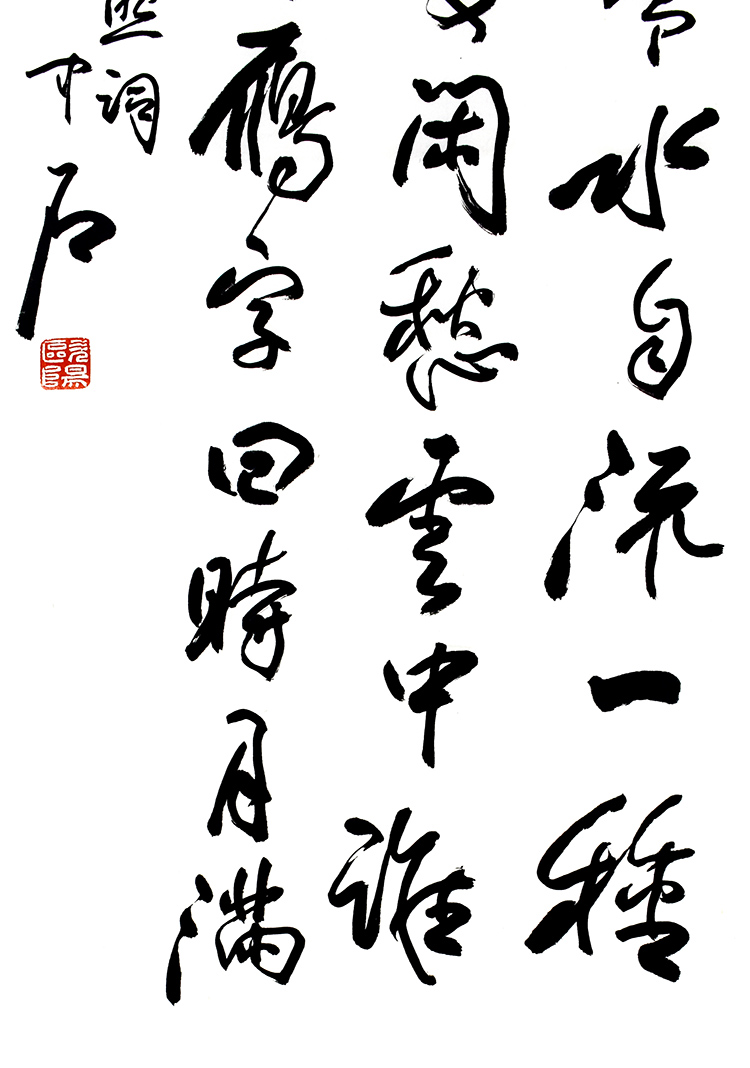 水自流一種
閑愁雲中誰
鴈字回時月滿
照詞
中石